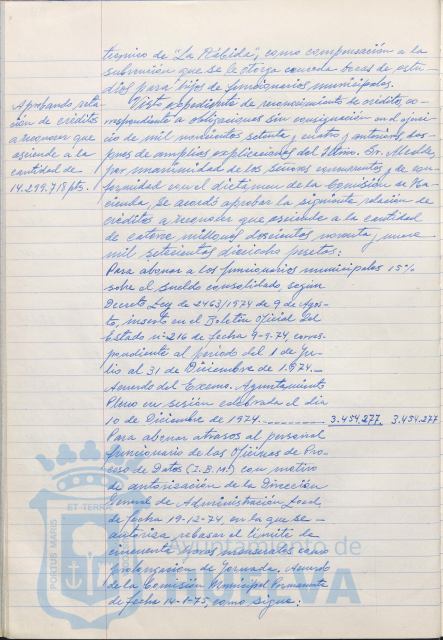 técnico de "La Rábida", como compensación a la
subvención que se le otorga conceda becas de estu-
dios para hijos de funcionarios municipales.
Aprobando rela-
ción de créditos
a reconocer que
asciende a la
cantidad de
14.299.718 pts.
Visto expediente de reconocimiento de créditos, co-
rrespondiente a obligaciones sin consignación en el ejerci-
cio de mil novecientos setenta y cuatro y anteriores, des-
pues de amplias explicaciones del Iltmo. Sr. Alcalde,
por unanimidad de los señores concurrentes y de con-
formidad con el dictamen de la Comisión de Ha-
cienda, se acordó aprobar la siguiente relación de
créditos a reconocer que asciende a la cantidad
de catorce millones doscientos noventa y nueve
mil setecientos dieciocho pesetas:
Para abonar a los funcionarios municipales 15%
sobre el sueldo consolidado, según
Decreto Ley de 2463/1974 de 9 de Agos-
to, inserto en el Boletín Oficial del
Estado nº 216 de fecha 9-9-74, corres-
pondiente al periodo del 1 de Ju-
lio al 31 de Diciembre de 1.974.—
Acuerdo del Excmo. Ayuntamiento
Pleno en sesión celebrada el dia
10 de Diciembre de 1974. ---------- 3.454.277. 3.454.277
Para abonar atrasos al personal
funcionario de las Oficinas de Pro-
ceso de Datos (I.B.M.) con motivo
de autorización de la Dirección
General de Administración Local
de fecha 19-12-74, en la que se —
autoriza rebasar el límite de
cincuenta horas mensuales como
Prolongación de Jornada, Acuerdo
de la Comisión Municipal Permanente
de fecha 14-1-75, como sigue:
PORTUS MARIS
ET TERR
Ayuntamiento de